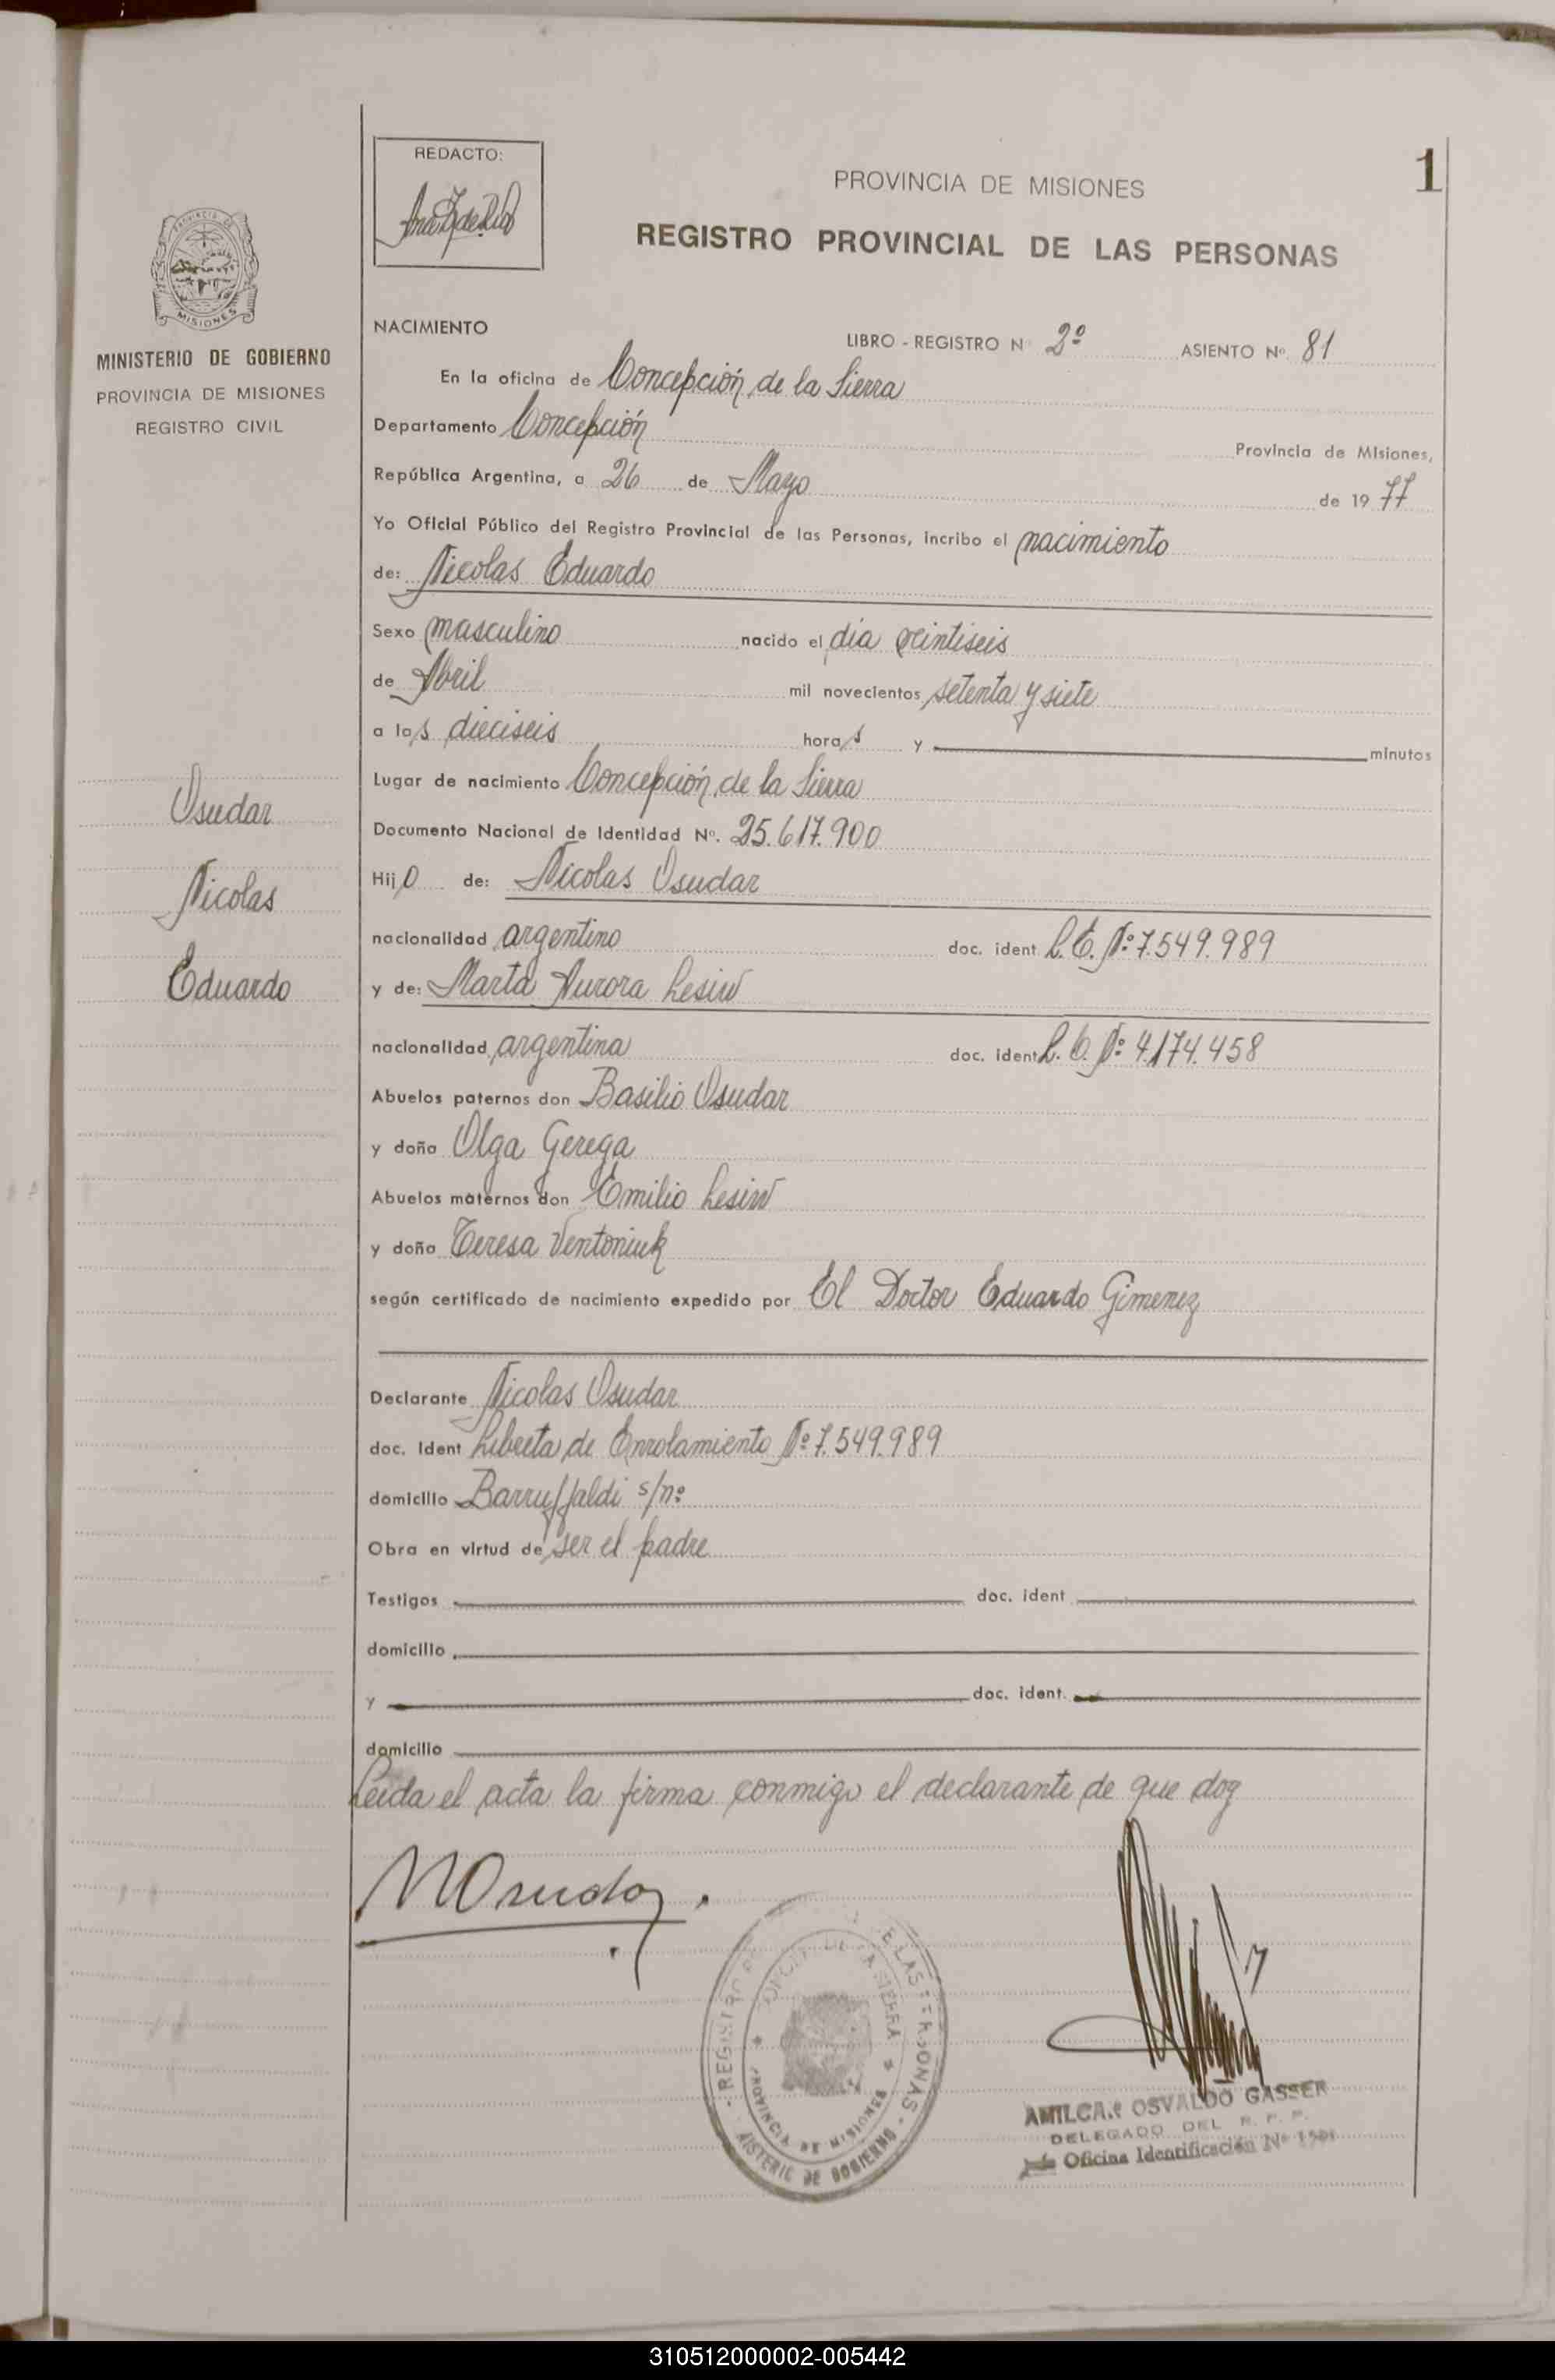 REDACTO:
PROVINCIA DE MISIONES
1
REGISTRO PROVINCIAL DE LAS PERSONAS
PROVINCIA DE
MISIONES
MINISTERIO DE GOBIERNO
PROVINCIA DE MISIONES
REGISTRO CIVIL
NACIMIENTO
LIBRO - REGISTRO N 2º ASIENTO Nº 81
En la oficina de Concepción de la Sierra
Departamento Concepción Provincia de Misiones,
República Argentina, a 26 de Mayo de 1977
Yo Oficial Público del Registro Provincial de las Personas, incribo el nacimiento
de: Nicolas Eduardo
Sexo masculino nacido el día veintiseis
de Abril mil novecientos setenta y siete
a las dieciseis horas y minutos
Lugar de nacimiento Concepción de la Sierra
Documento Nacional de Identidad Nº. 25.617.900
Hijo de: Nicolas Osudar
nacionalidad argentino doc. ident. L.E. Nº 7.549.989
y de: Marta Aurora Lesiw
nacionalidad argentina doc. ident L.C. Nº 4.174.458
Abuelos paternos don Basilio Osudar
y doña Olga Gerega
Abuelos maternos don Emilio Lesiw
y doña Teresa Ventoniuk
según certificado de nacimiento expedido por El Doctor Eduardo Gimenez
Declarante Nicolas Osudar
doc. Ident Libreta de Enrolamiento Nº 7.549.989
domicilio Barruffaldi s/nº
Obra en virtud de ser el padre
Testigos doc. ident
domicilio
y doc. ident.
domicilio
Leida el acta la firma conmigo el declarante de que doy
Osudar
Nicolas
Eduardo
NOsudar.
PROVINCIA DE MISIONES
AMILCAR OSVALDO GASSER
DELEGADO DEL R. P. P.
Oficina Identificación Nº
310512000002-005442